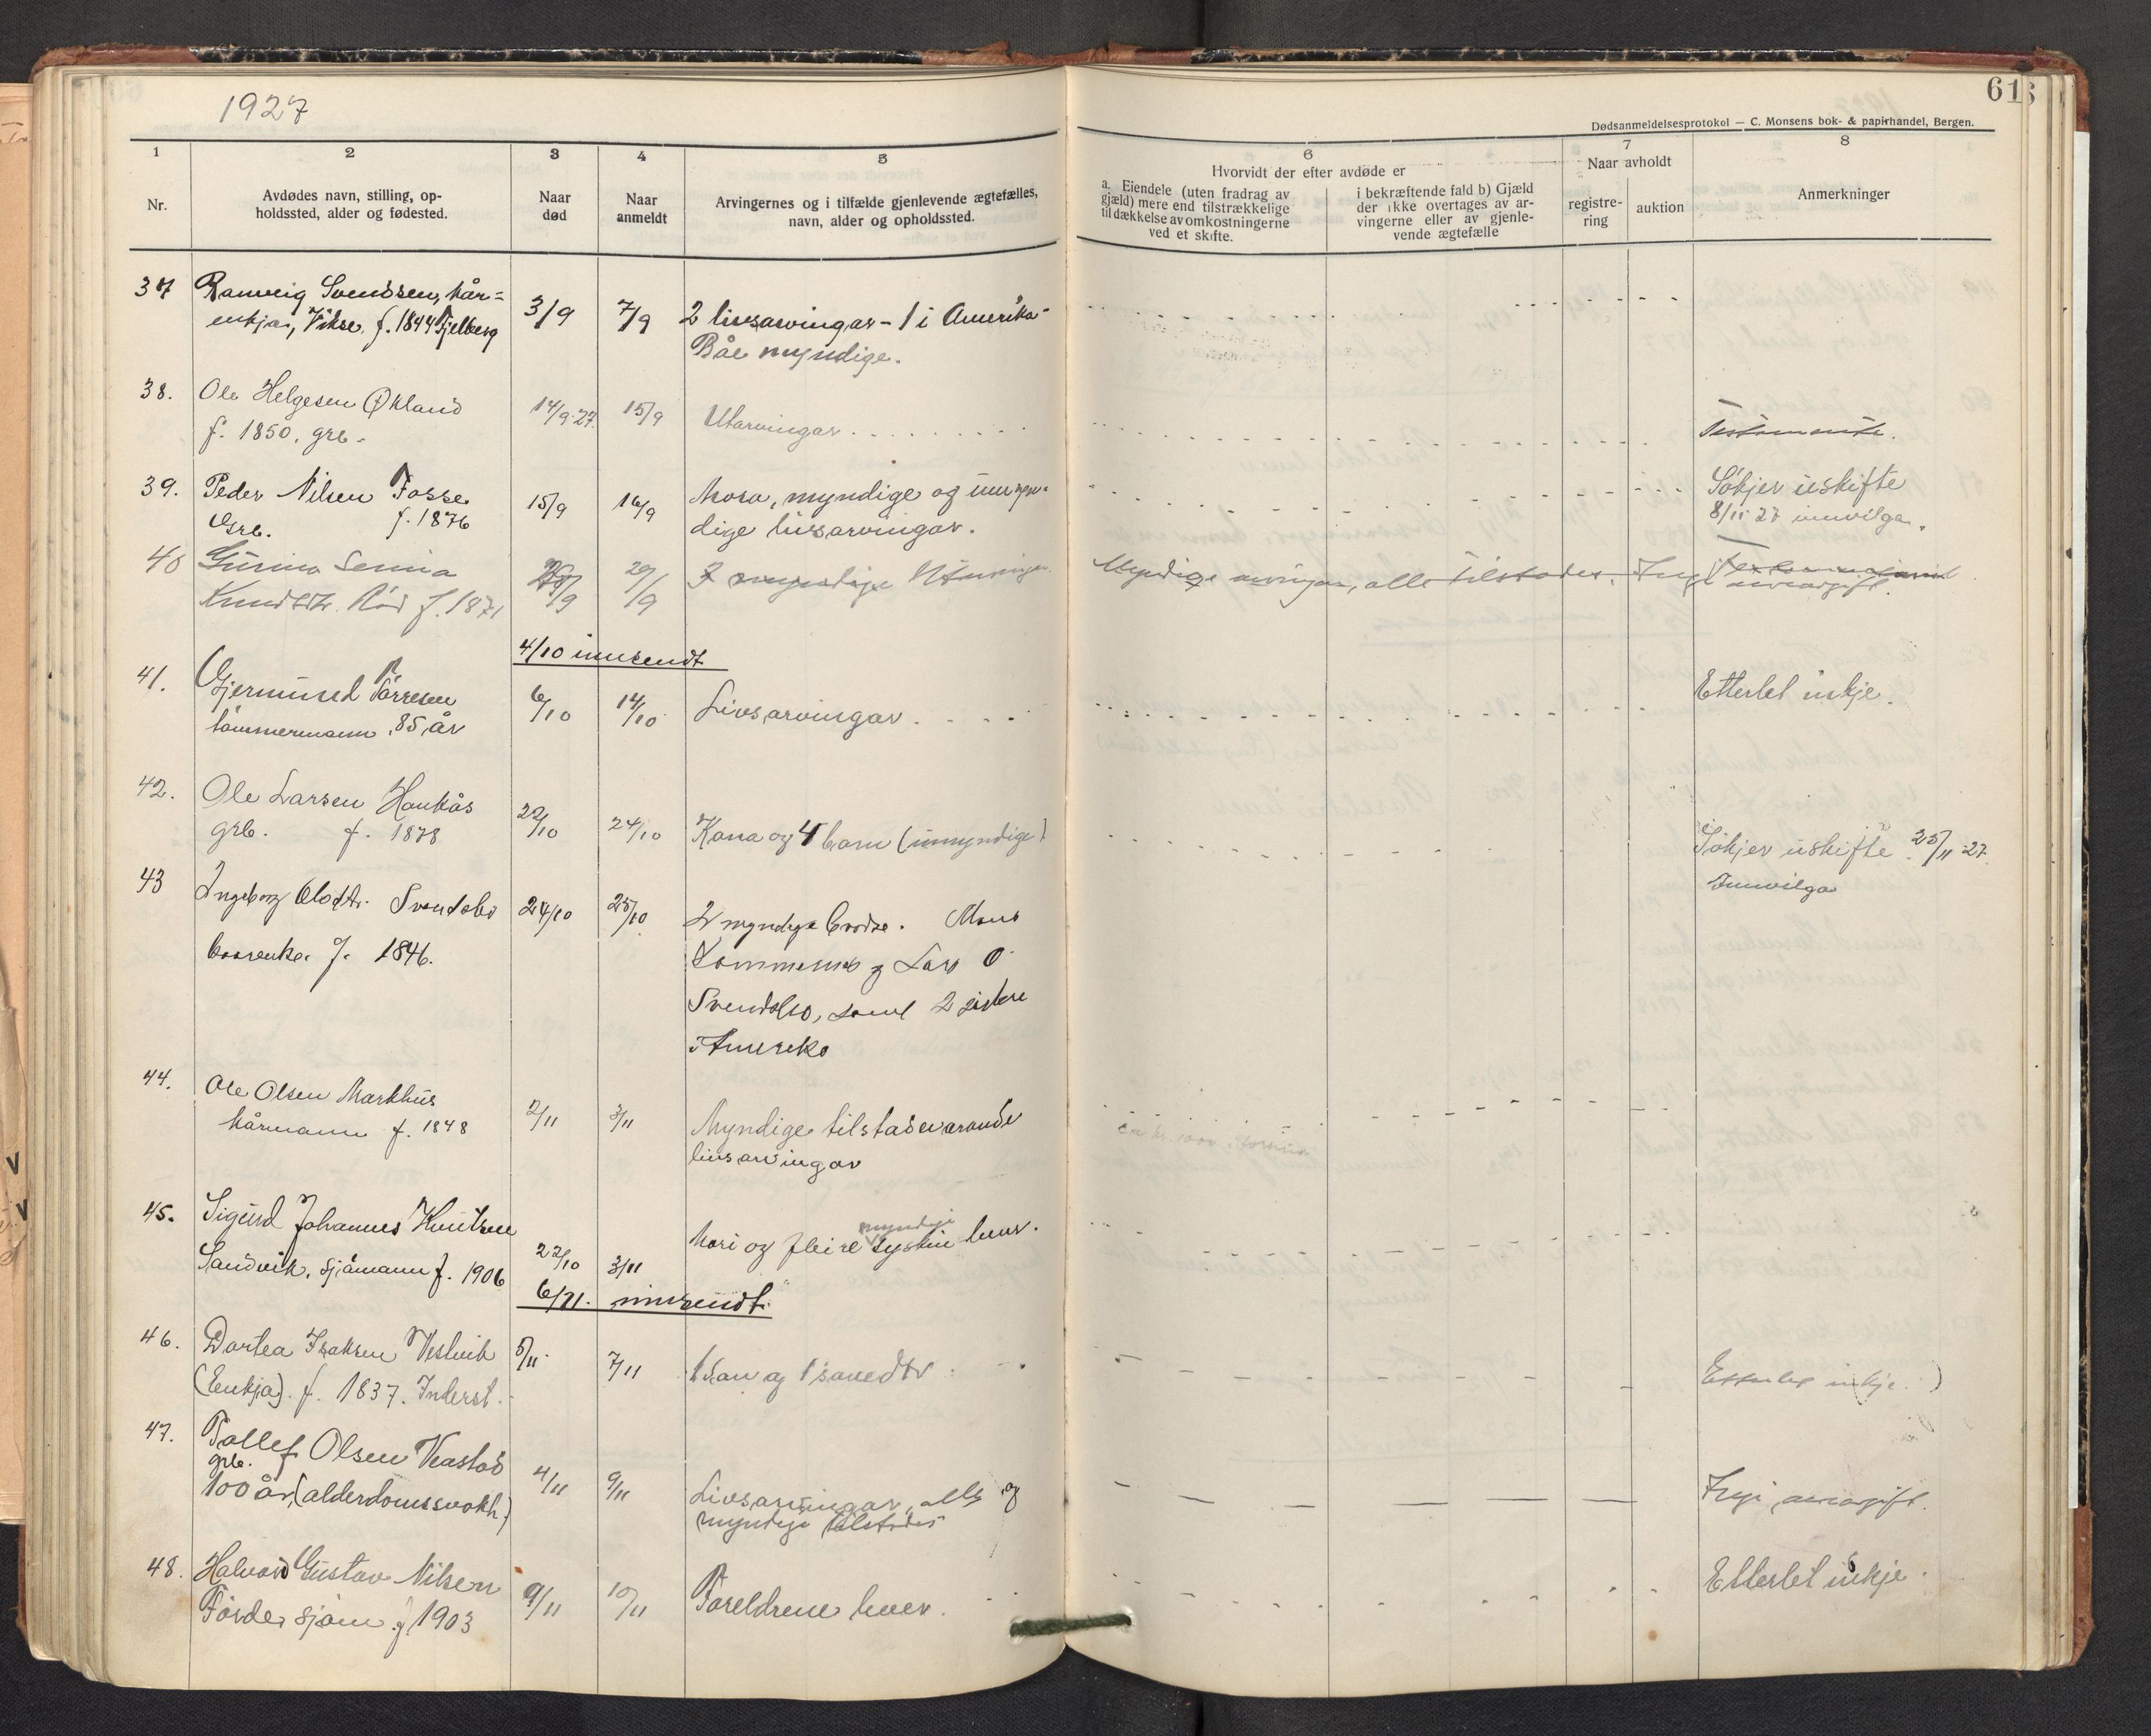 1927
61
Dødsanmeldelsesprotokol — C. Monsens bok- & papirhandel, Bergen.
1
2
3
4
5
6
7
8
Nr.
Avdødes navn, stilling, op-
holdssted, alder og fødested.
Naar
død
Naar
anmeldt
Arvingernes og i tilfælde gjenlevende ægtefælles,
navn, alder og opholdssted.
Hvorvidt der efter avdøde er
a. Eiendele (uten fradrag av
gjæld) mere end tilstrækkelige
til dækkelse av omkostningerne
ved et skifte.
i bekræftende fald b) Gjæld
der ikke overtages av ar-
vingerne eller av gjenle-
vende ægtefælle
Naar avholdt
registre-
ring
auktion
Anmerkninger
37 Ranveig Svendsen, kår-
enkja, Vikse, f. 1844 Fjelberg
3/9 7/9 2 livsarvingar - 1 i Amerika -
Båe myndige.
38. Ole Helgesen Økland
f. 1850. grb.
14/9-27. 15/9 Utarvingar
Testamente.
39. Peder Nilsen Fosse
Grb. f. 1876
15/9 16/9 Kona, myndige og umyn-
dige livsarvingar.
Søkjer uskifte
8/11 27 innvilga.
40 Gurina Senina
Knudsdtr. Röd f. 1871
/9 29/9 myndige Utarvingar
Myndige arvingar, alle tilstades.
arveavgift.
4/10 innsendt
41. Gjermund Tørresen
tømmermann 85 år
6/10 14/10 Livsarvingar.
Etterlet inkje.
42. Ole Larsen Haukås
grb. f. 1878
22/10 24/10 Kona og 4 born (umyndige)
Søkjer uskifte 25/11-27.
Innvilga
43 Ingeborg Olsdtr. Svendsbø
f. 1846.
24/10 25/10 2 myndige brødre. Mons
og Lars O.
Svendsbø, samt 2 søstre
i Amerika
44. Ole Olsen Markhus
kårmann f. 1848
2/11 3/11 Myndige tilstadeverande
livsarvingar
ca kr. 1000 i formue
45. Sigurd Johannes Knutsen
Sandvik, sjømann f. 1906
22/10 3/11 Mori og fleire myndige syskin lever.
6/11. innsendt.
46. Dortea Isaksen Vestvik
(Enkja). f. 1837. Inderst.
5/11. 7/11 1 son og 1 sonedtr
Etterlet inkje.
47. Tollef Olsen Veastad
grb.
100 år. (alderdomssvakh.)
4/11 9/11 Livsarvingar, alle og
myndige tilstades
Ingi arveavgift.
48. Halvard Gustav Nilsen
Førde, sjøm. f. 1903
9/11 10/11 Foreldrene lever.
Etterlet inkje.